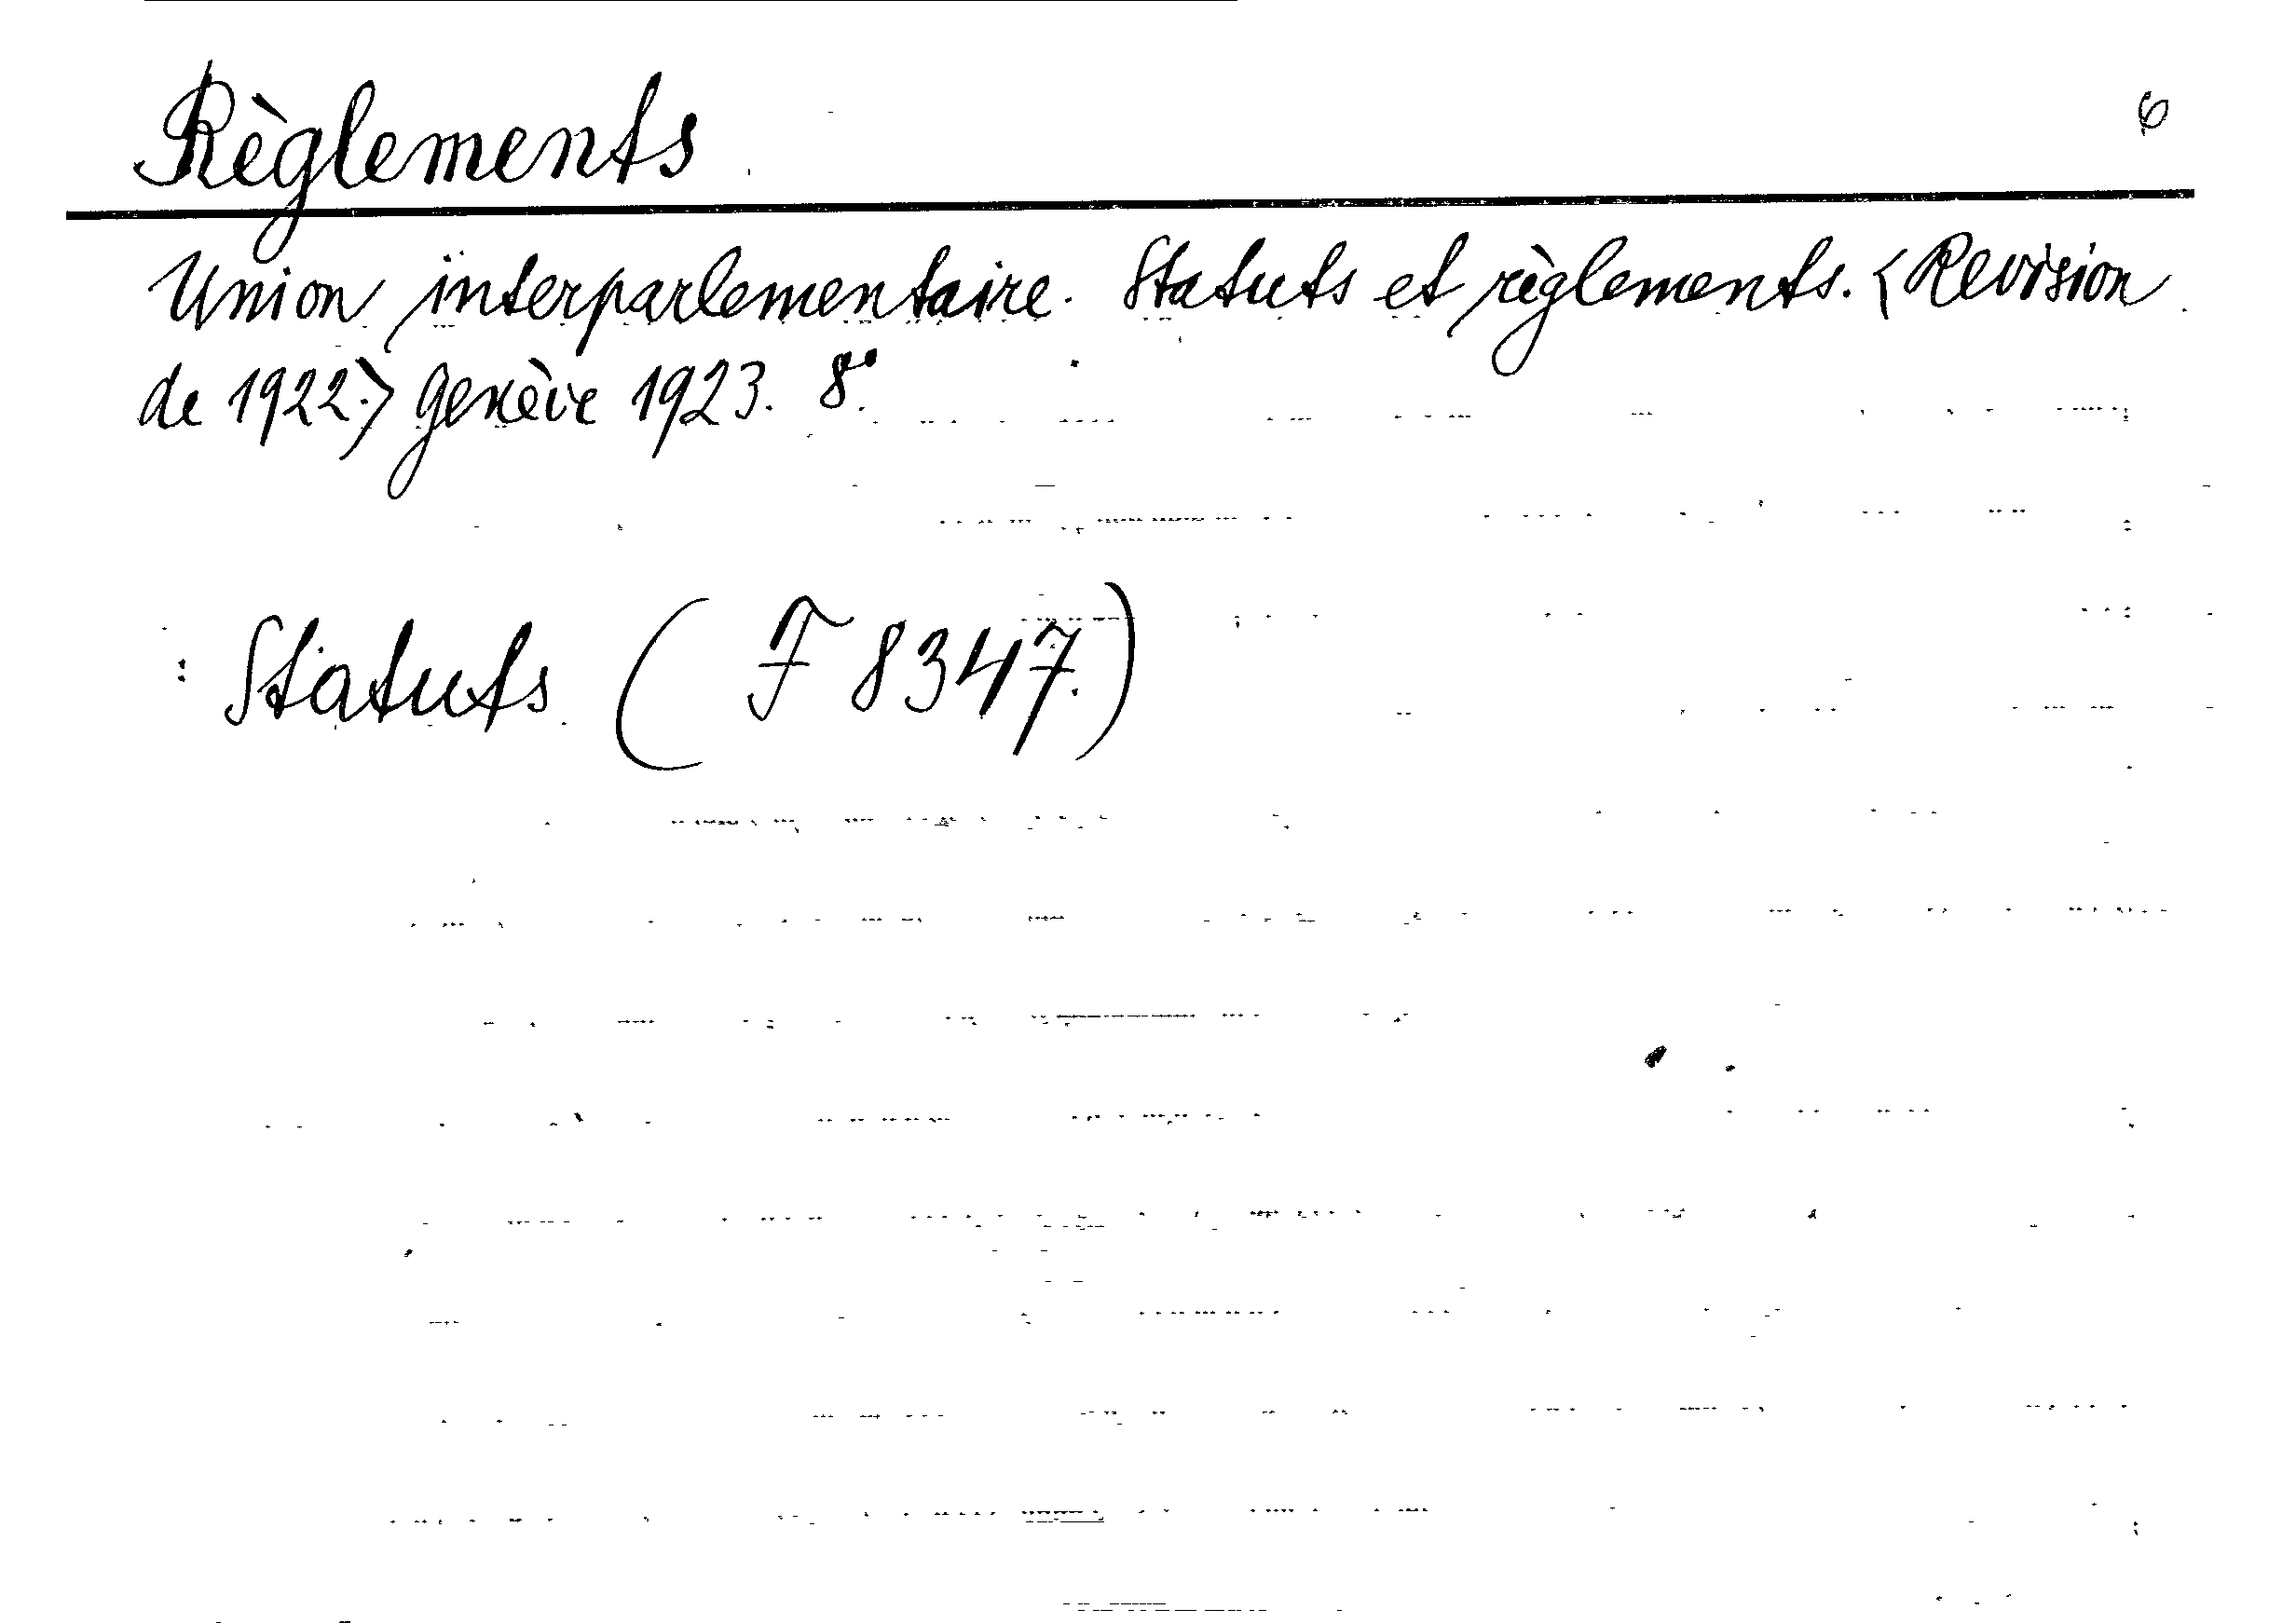 Règlements 6
Union interparlementaire. Statuts et règlements. <Revision
de 1922.> Genève 1923. 8°.
: Statuts (F 8347.)